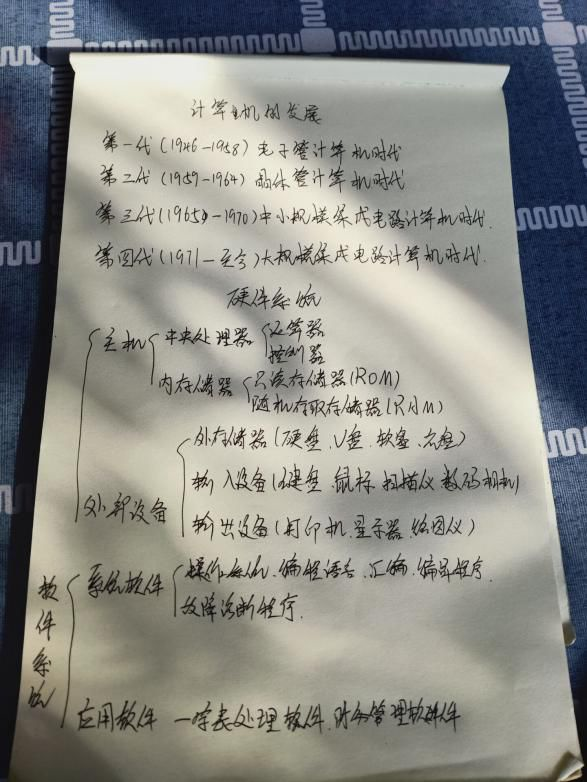 计算机的发展
第一代(1946-1958)电子管计算机时代
第二代(1959-1964)晶体管计算机时代
第三代(1965-1970)中小规模集成电路计算机时代.
第四代(1971-至今)大规模集成电路计算机时代.
硬件系统
主机 中央处理器 运算器
控制器
内存储器 只读存储器(ROM)
随机存取存储器(RAM)
外部设备 外存储器(硬盘、U盘、软盘、光盘)
输入设备(键盘、鼠标、扫描仪、数码相机)
输出设备(打印机、显示器、绘图仪)
软件系统 系统软件 操作系统、编程语言、汇编、编译程序、
故障诊断程序.
应用软件 —字表处理软件、财务管理软件